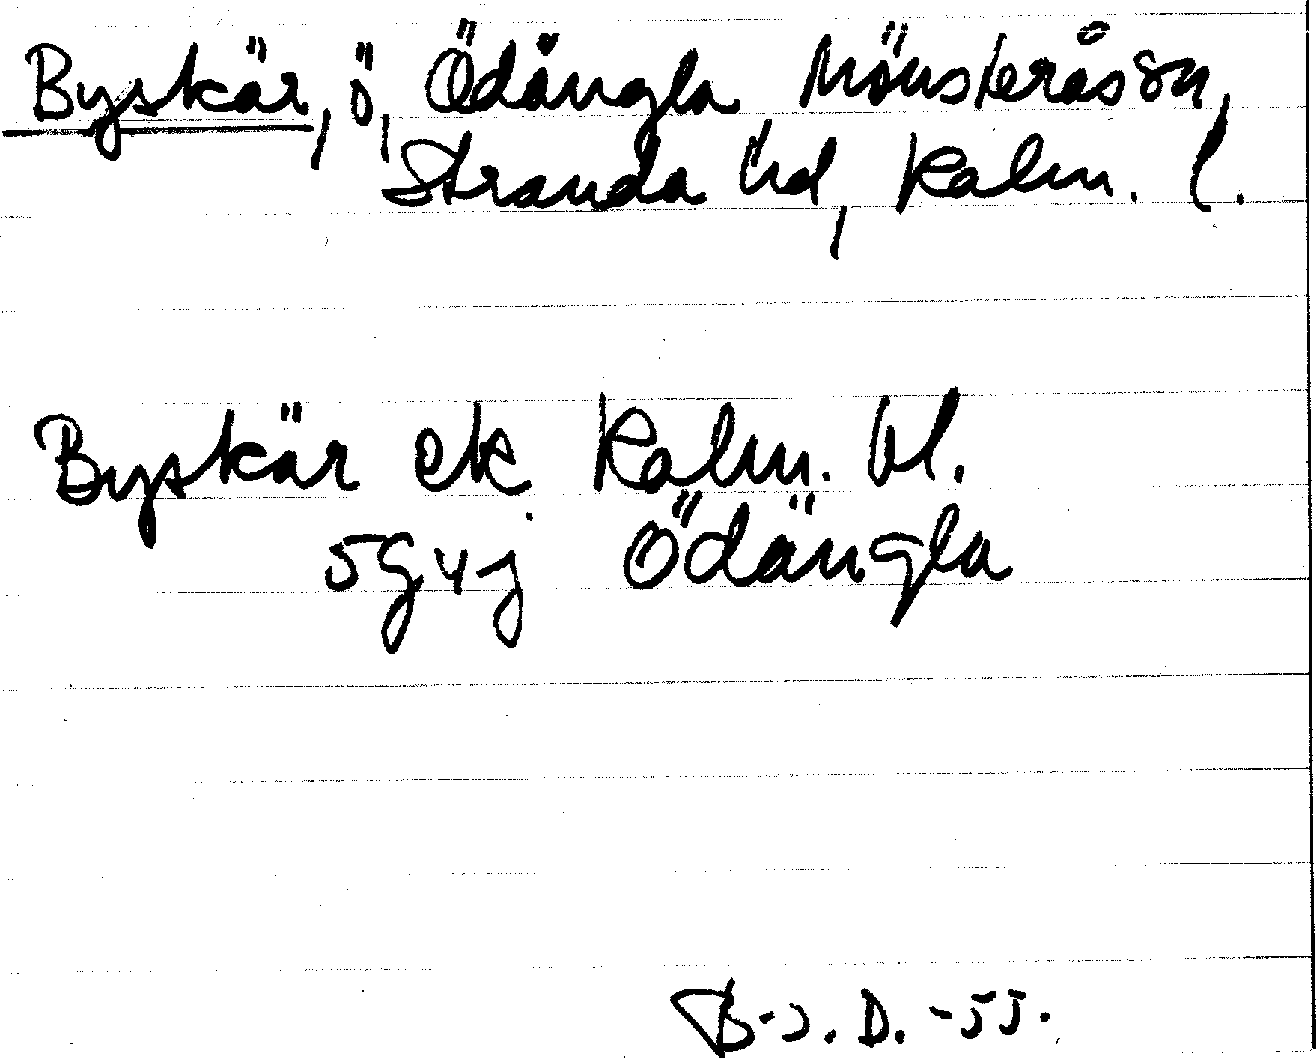 Byskär, ö, Ödängla Mönsterås sn,
Stranda hd, Kalm. l.
Byskär ek Kalm. bl.
5G4j Ödängla
B-J. D. -55.